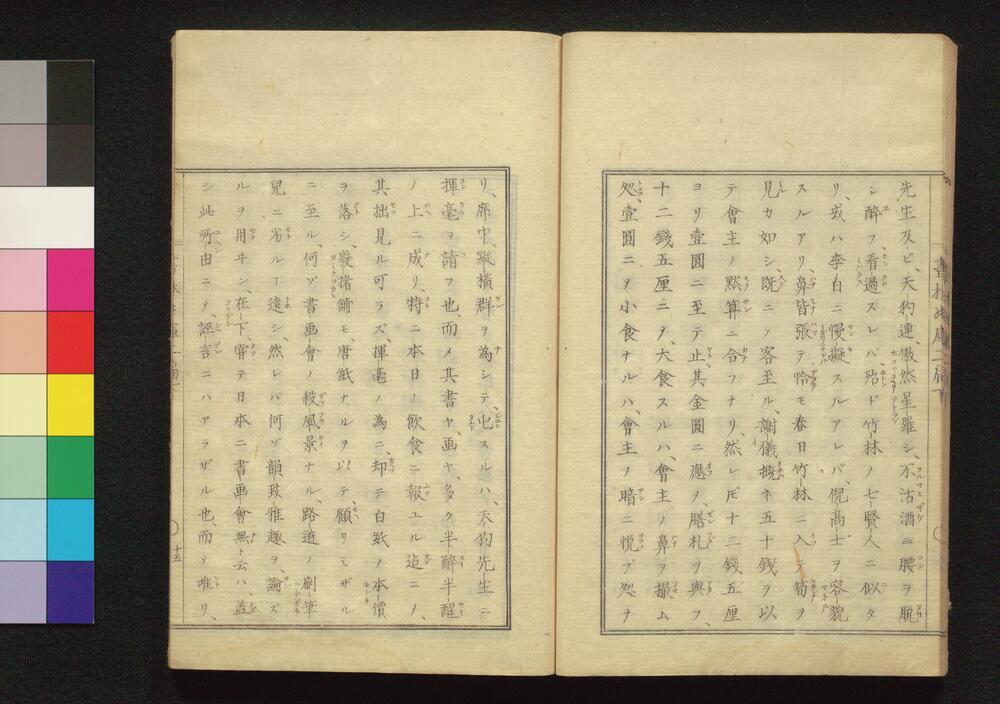 先生及ビ、天狗連、傲然星羅シ、不沽酒ニ腰ヲ脱
シ醉フ、看過スレバ、殆ド竹林ノ七賢人ニ似タ
リ、或ハ李白ニ慢擬スルアレバ、倪高士ヲ容貌
スルアリ、鼻皆張テ恰モ春日竹林ニ入テ筍ヲ
見カ如シ、既ニㇱテ客至ル、謝儀概ネ五十錢ヲ以
テ會主ノ黙算ニ合フナリ然レ𪜈十二錢五厘
ヨリ壹圓ニ至テ止、其金圓ニ應ジ膳札ヲ與フ、
十二錢五厘ニㇱテ、大食スルハ、會主ノ鼻ヲ撮ム
処、壹圓ニㇱテ小食ナルハ、會主ノ暗ニ悦ブ処ナ
リ、席中、縱横群ヲ為シテ、屯スル庭ハ、天狗先生ニ
揮毫ヲ請フ也、而〆其書ヤ、画ヤ、多ク半醉半醒
ノ上ニ成リ、特ニ本日ノ飲食ニ報ユル迠ニㇱテ、
其拙見ル可ラズ、揮毫ノ為ニ、却テ白紙ノ本價
ヲ落シ、廢楮鋪モ、唐紙ナルヲ以テ、顧リミザル
ニ至ル、何ゾ書画會ノ殺風景ナル、路道ノ刷筆
兒ニ劣ルヿ遠シ、然レバ何ゾ韻致雅趣ヲ、論ズ
ルヲ用ヰン、在下、嘗テ日本ニ書画會無ト云ハ、蓋
シ此所由ニㇱテ、誣言ニハアラザル也、而ㇱテ唯リ、
十五